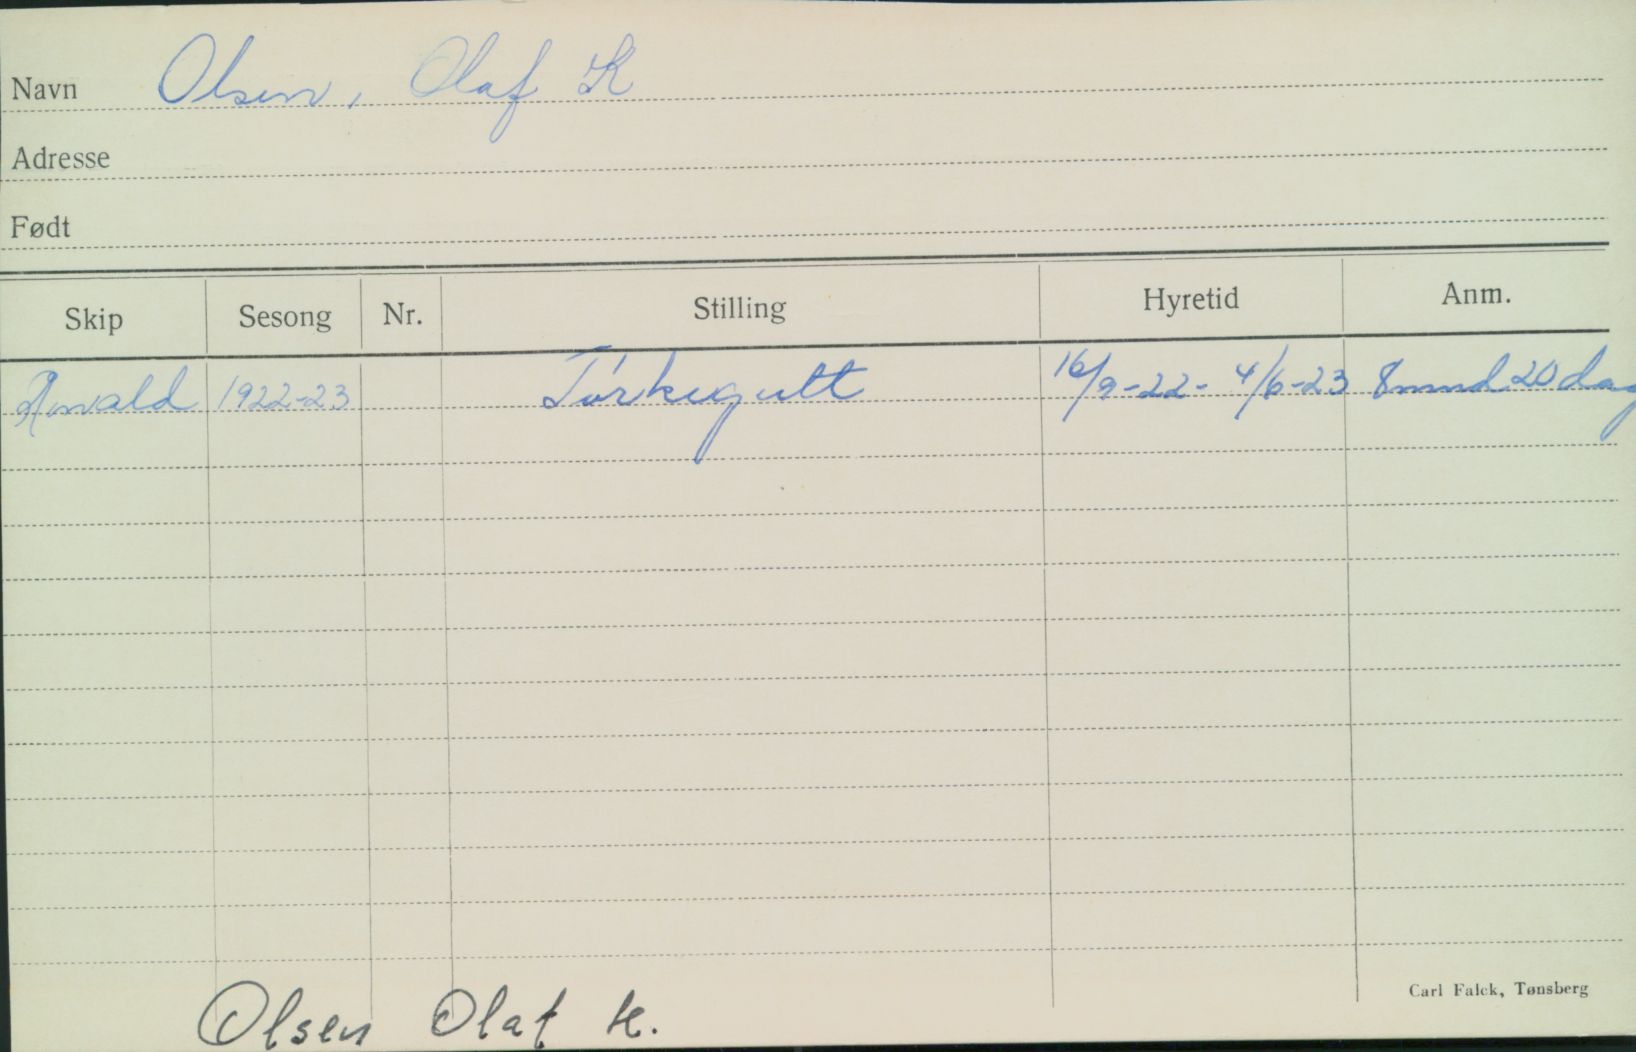 Navn Olsen, Olaf K
Adresse
Født
Skip Sesong Nr. Stilling Hyretid Anm.
Ronald 1922-23 Tørkegutt 16/9-22- 4/6-23 8 mnd 20 dag
Carl Falck, Tønsberg
Olsen Olaf K.